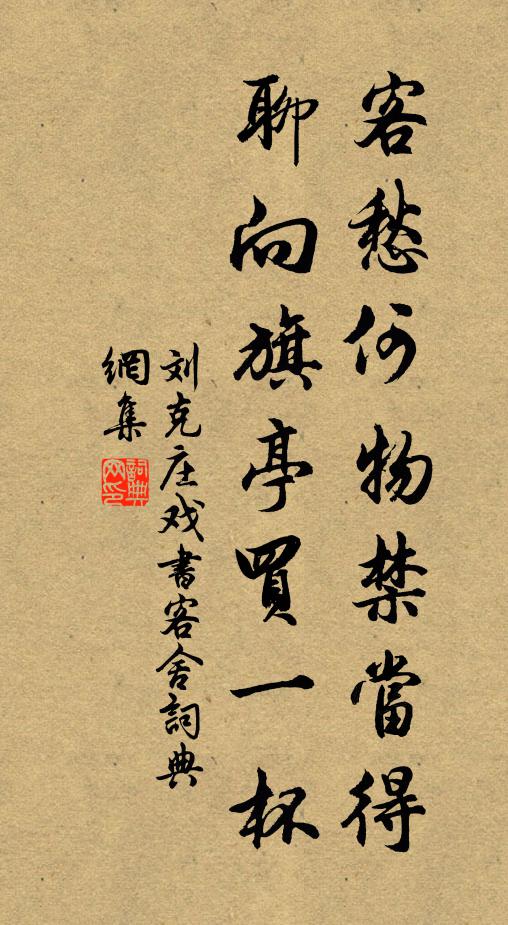 客愁何物禁當得
聊向旗亭買一杯
刘克庄戏書客舍詞典
網集
詞典网印